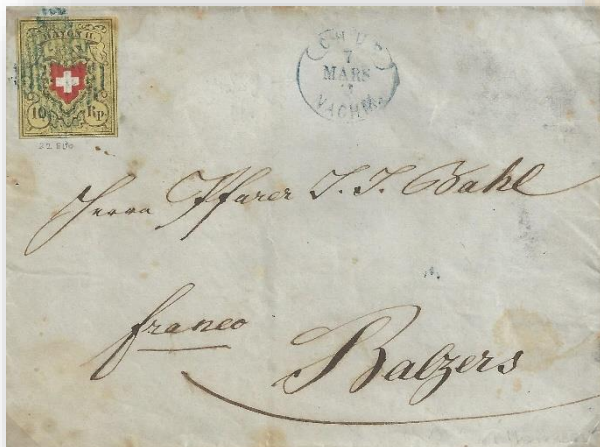 RAYON II.
10 Rp.
CHUR
7
MARS
VACHM.
Herrn Pfarer J. J. Bahl
franco
Balzers